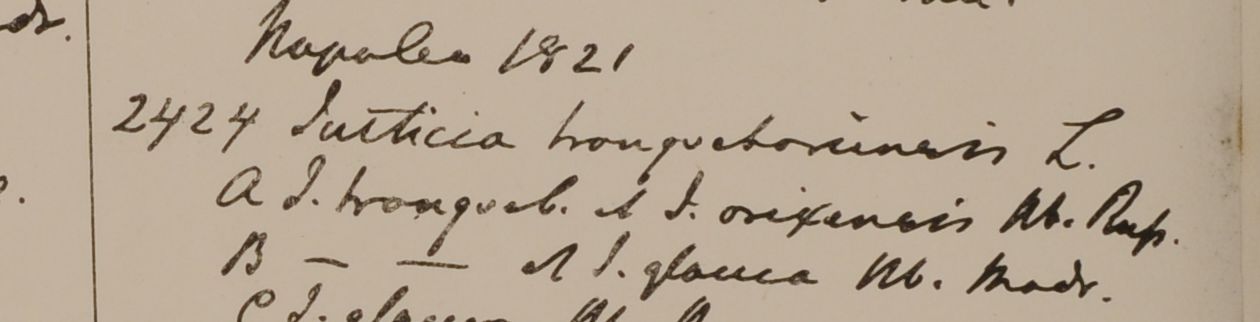 Napalea 1821
2424 Justicia tranquebariensis L.
A J. tranqueb. et J. orixensis Hb. Russ.
B — — et J. glauca Hb. Madr.
C J. glauca Hb.